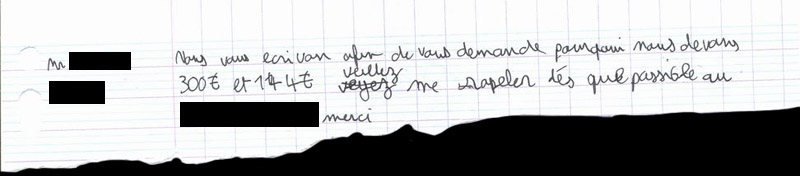 Mr
Nous vous ecrivon afin de vous demande pourquoi nous devons
300€ et 144€ veillez me rapeler dés que possible au
merci